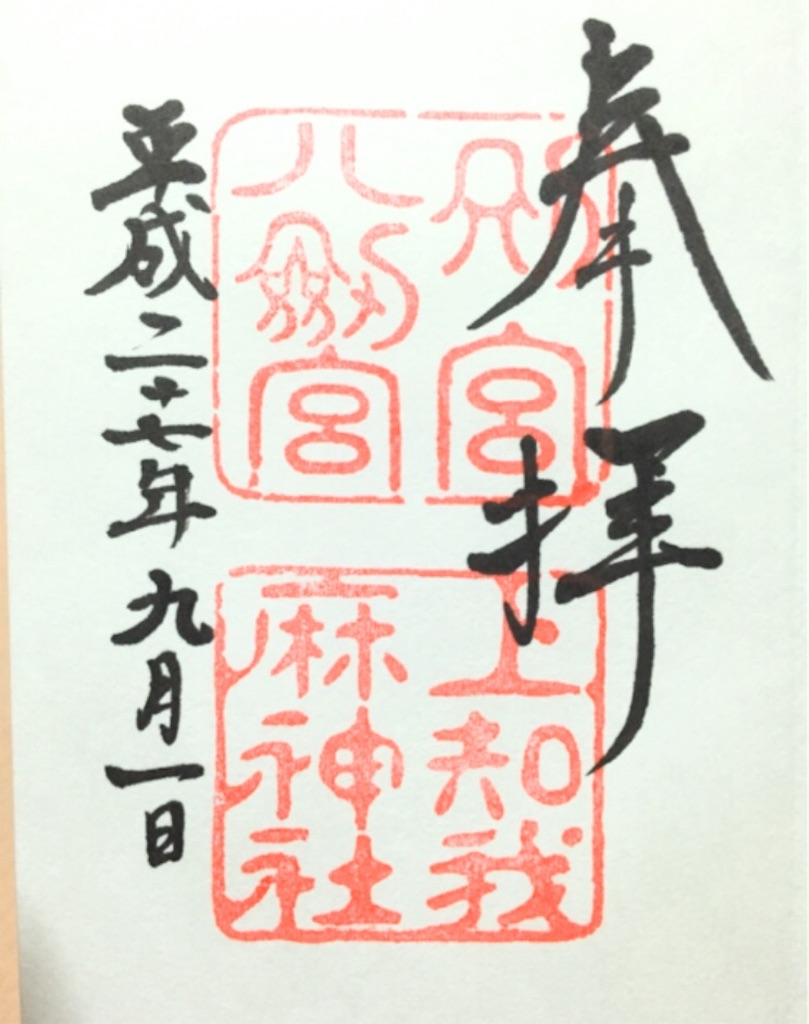 奉拝
別宮
八剣宮
上知我
麻神社
平成二十七年九月一日